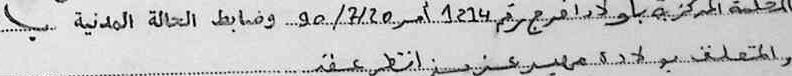 المحلمة المركزية بأولاد افرج رقم 1214 أمر 90/7/20 وضابط الحالة المدنية ب
والمتعلق بولادة عزيز انظر عقد